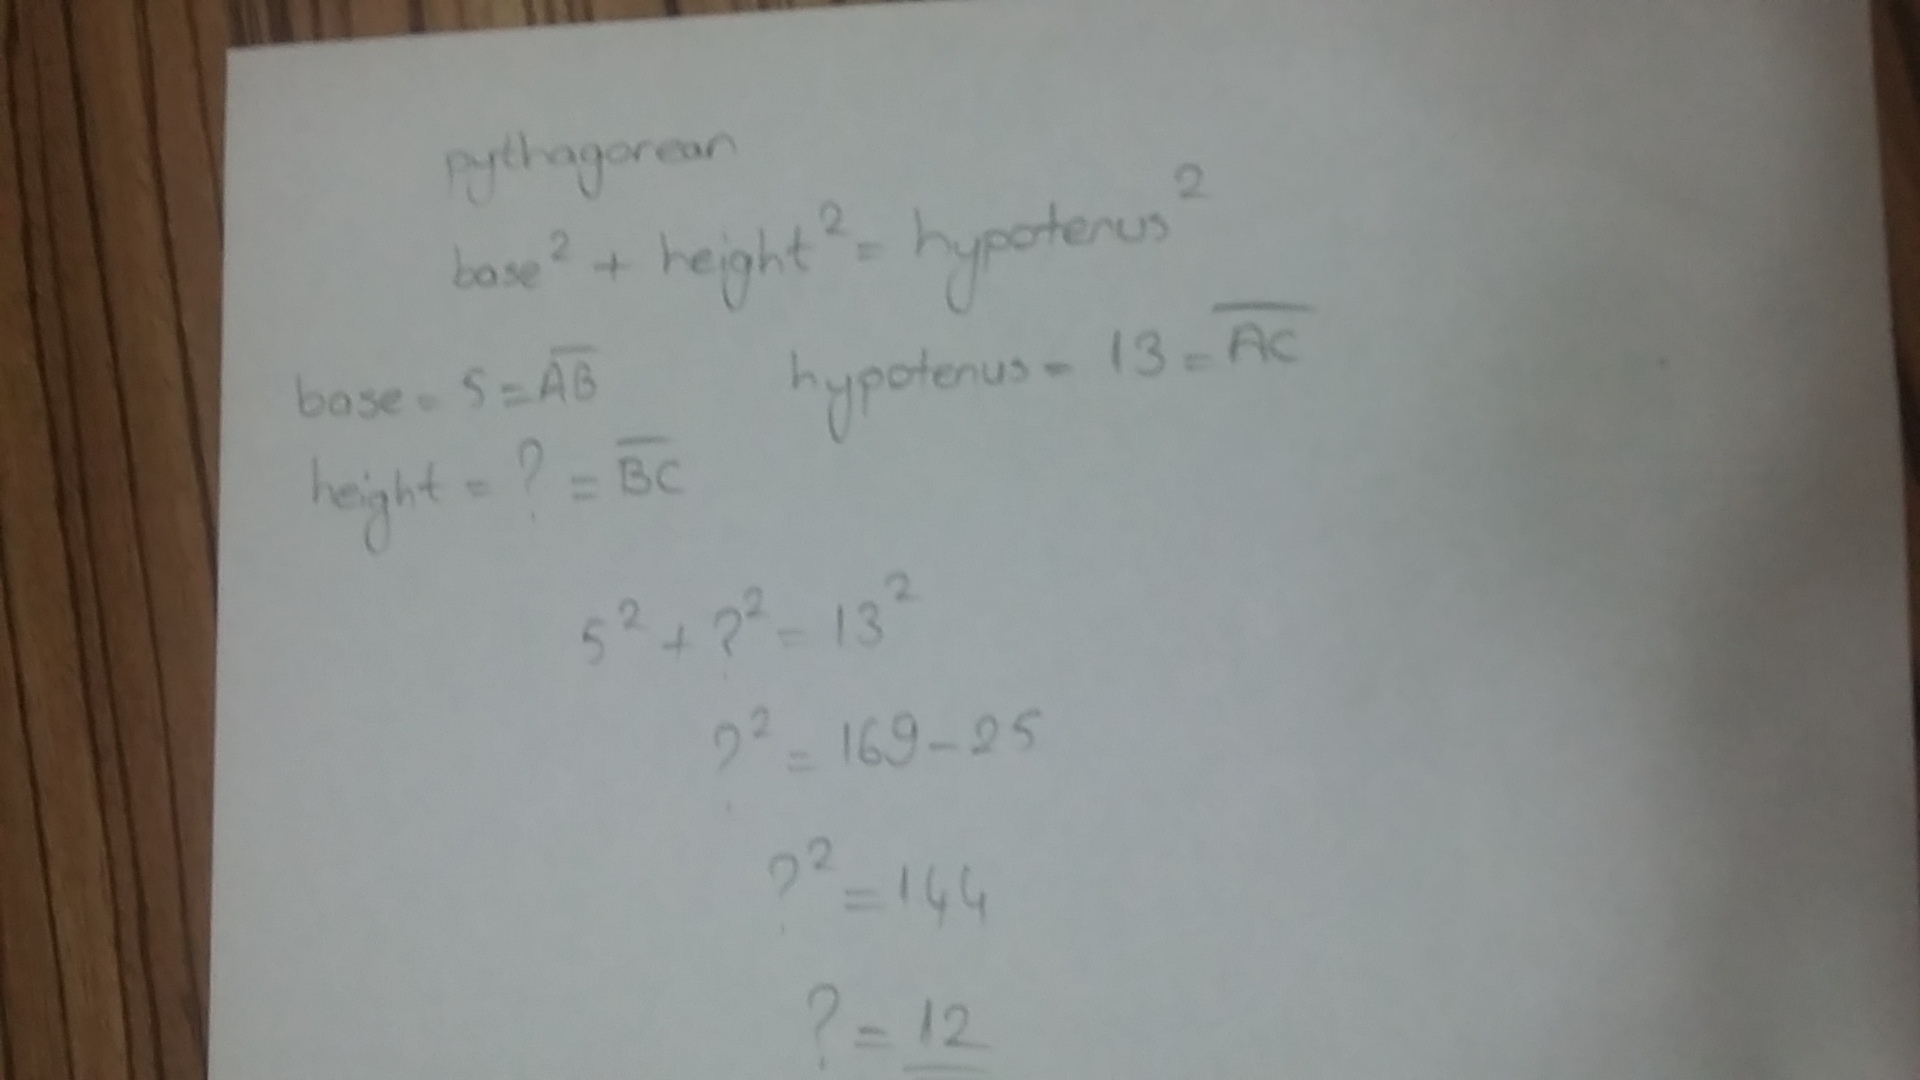 pythagorean
base² + height² = hypotenus²
base = 5 = A̅B̅ hypotenus = 13 = A̅C̅
height = ? = B̅C̅
5² + ?² = 13²
?² = 169 - 25
?² = 144
? = 12